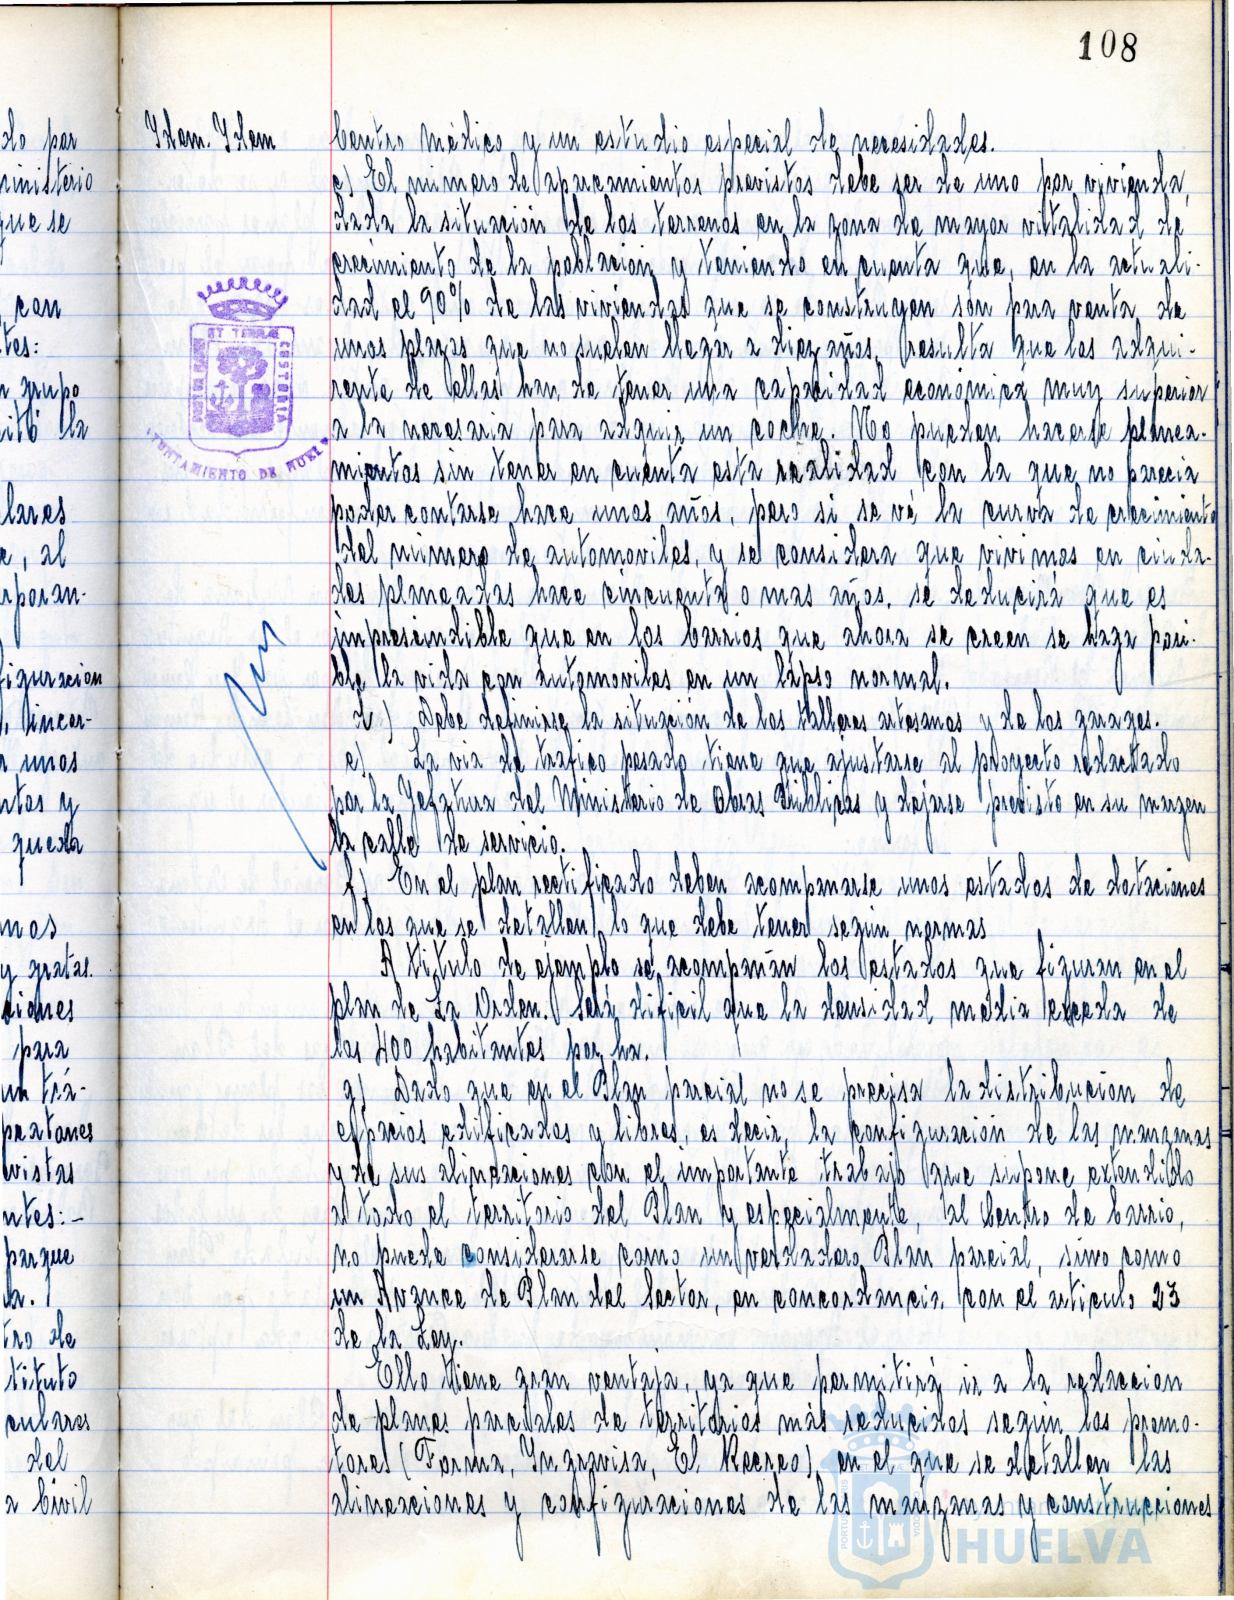 108
Idem. Idem
Centro Médico y un estudio especial de necesidades.
c) El número de aparcamientos previstos debe ser de uno por vivienda,
dada la situación de los terrenos en la zona de mayor vitalidad de
crecimiento de la población y teniendo en cuenta que, en la actuali-
dad el 90% de las viviendas que se construyen són para venta de
unos plazos que no suelen llegar a diez años, resulta que los adqui-
rente de ellas han de tener una capacidad económica muy superior
a la necesaria para adquirir un coche. No pueden hacerse planea-
mientos sin tener en cuenta esta realidad con la que no parecia
poder contarse hace unos años, pero si se vé la curva de crecimiento
del número de automoviles, y se considera que vivimos en ciuda-
des planeadas hace cincuenta o mas años, se deducirá que es
imprescindible que en los barrios que ahora se creen se haga posi-
ble la vida con automoviles en un lapso normal.
d) Debe definirse la situación de los talleres artesanos y de los garages.
e) La via de trafico pesado tiene que ajustarse al proyecto redactado
por la Jefatura del Ministerio de Obras Públicas y dejarse previsto en su margen
la calle de servicio.
f) En el plan rectificado deben acompañarse unos estados de dotaciones
en los que se detallen lo que debe tener según normas
A titulo de ejemplo se acompañan los estados que figuran en el
plan de La Orden. Será dificil que la densidad media exceda de
los 400 habitantes por ha.
g) Dado que en el Plan parcial no se precisa la distribución de
espacios edificados y libres, es decir, la configuración de las manzanas
y de sus alineaciones con el importante trabajo que supone extendido
a todo el territorio del Plan y especialmente, al Centro de barrio,
no puede considerarse como un verdadero Plan parcial, sino como
un Avance de Plan del Sector, en concordancia con el articulo 23
de la Ley.
Ello tiene gran ventaja, ya que permitirá ir a la redaccion
de planes parciales de territorios más reducidos según los promo-
tores (Forma, Ingravisa, El Recreo) en el que se detallen las
alineaciones y configuraciones de las manzanas y construcciones
do por
ministerio
que se
con
tes:
n grupo
citó la
lares
e, al
rporan-
figuracion
incor-
a unos
ntos y
queda
mos
y gratas.
ciones
para
un trá-
peatones
vistas
ntes:-
parque
a.
tro de
tituto
culares
del
a Civil
PORTUS MARIS ET TERRAE CUSTODIA
AYUNTAMIENTO DE HUELVA
HUELVA